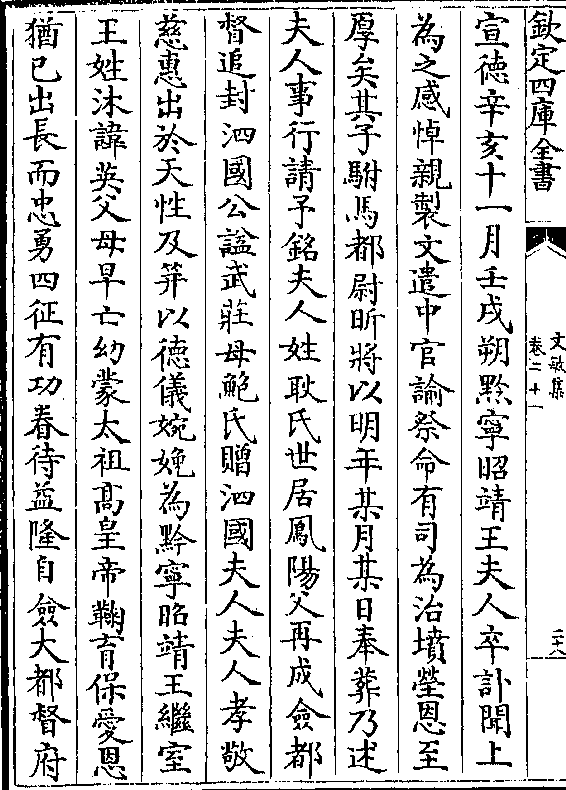 欽定四庫全書
文敏集
卷二十一
二十八
宣德辛亥十一月壬戌朔黔寧昭靖王夫人卒訃聞上
為之感悼親製文遣中官諭祭命有司為治墳塋恩至
厚矣其子駙馬都尉昕將以明年某月某日奉葬乃述
夫人事行請予銘夫人姓耿氏世居鳳陽父再成僉都
督追封泗國公諡武莊母鮑氏贈泗國夫人夫人孝敬
慈惠出於天性及笄以德儀婉娩為黔寧昭靖王繼室
王姓沐諱英父母早亡幼蒙太祖高皇帝鞠育保愛恩
猶己出長而忠勇四征有功眷待益隆自僉大都督府